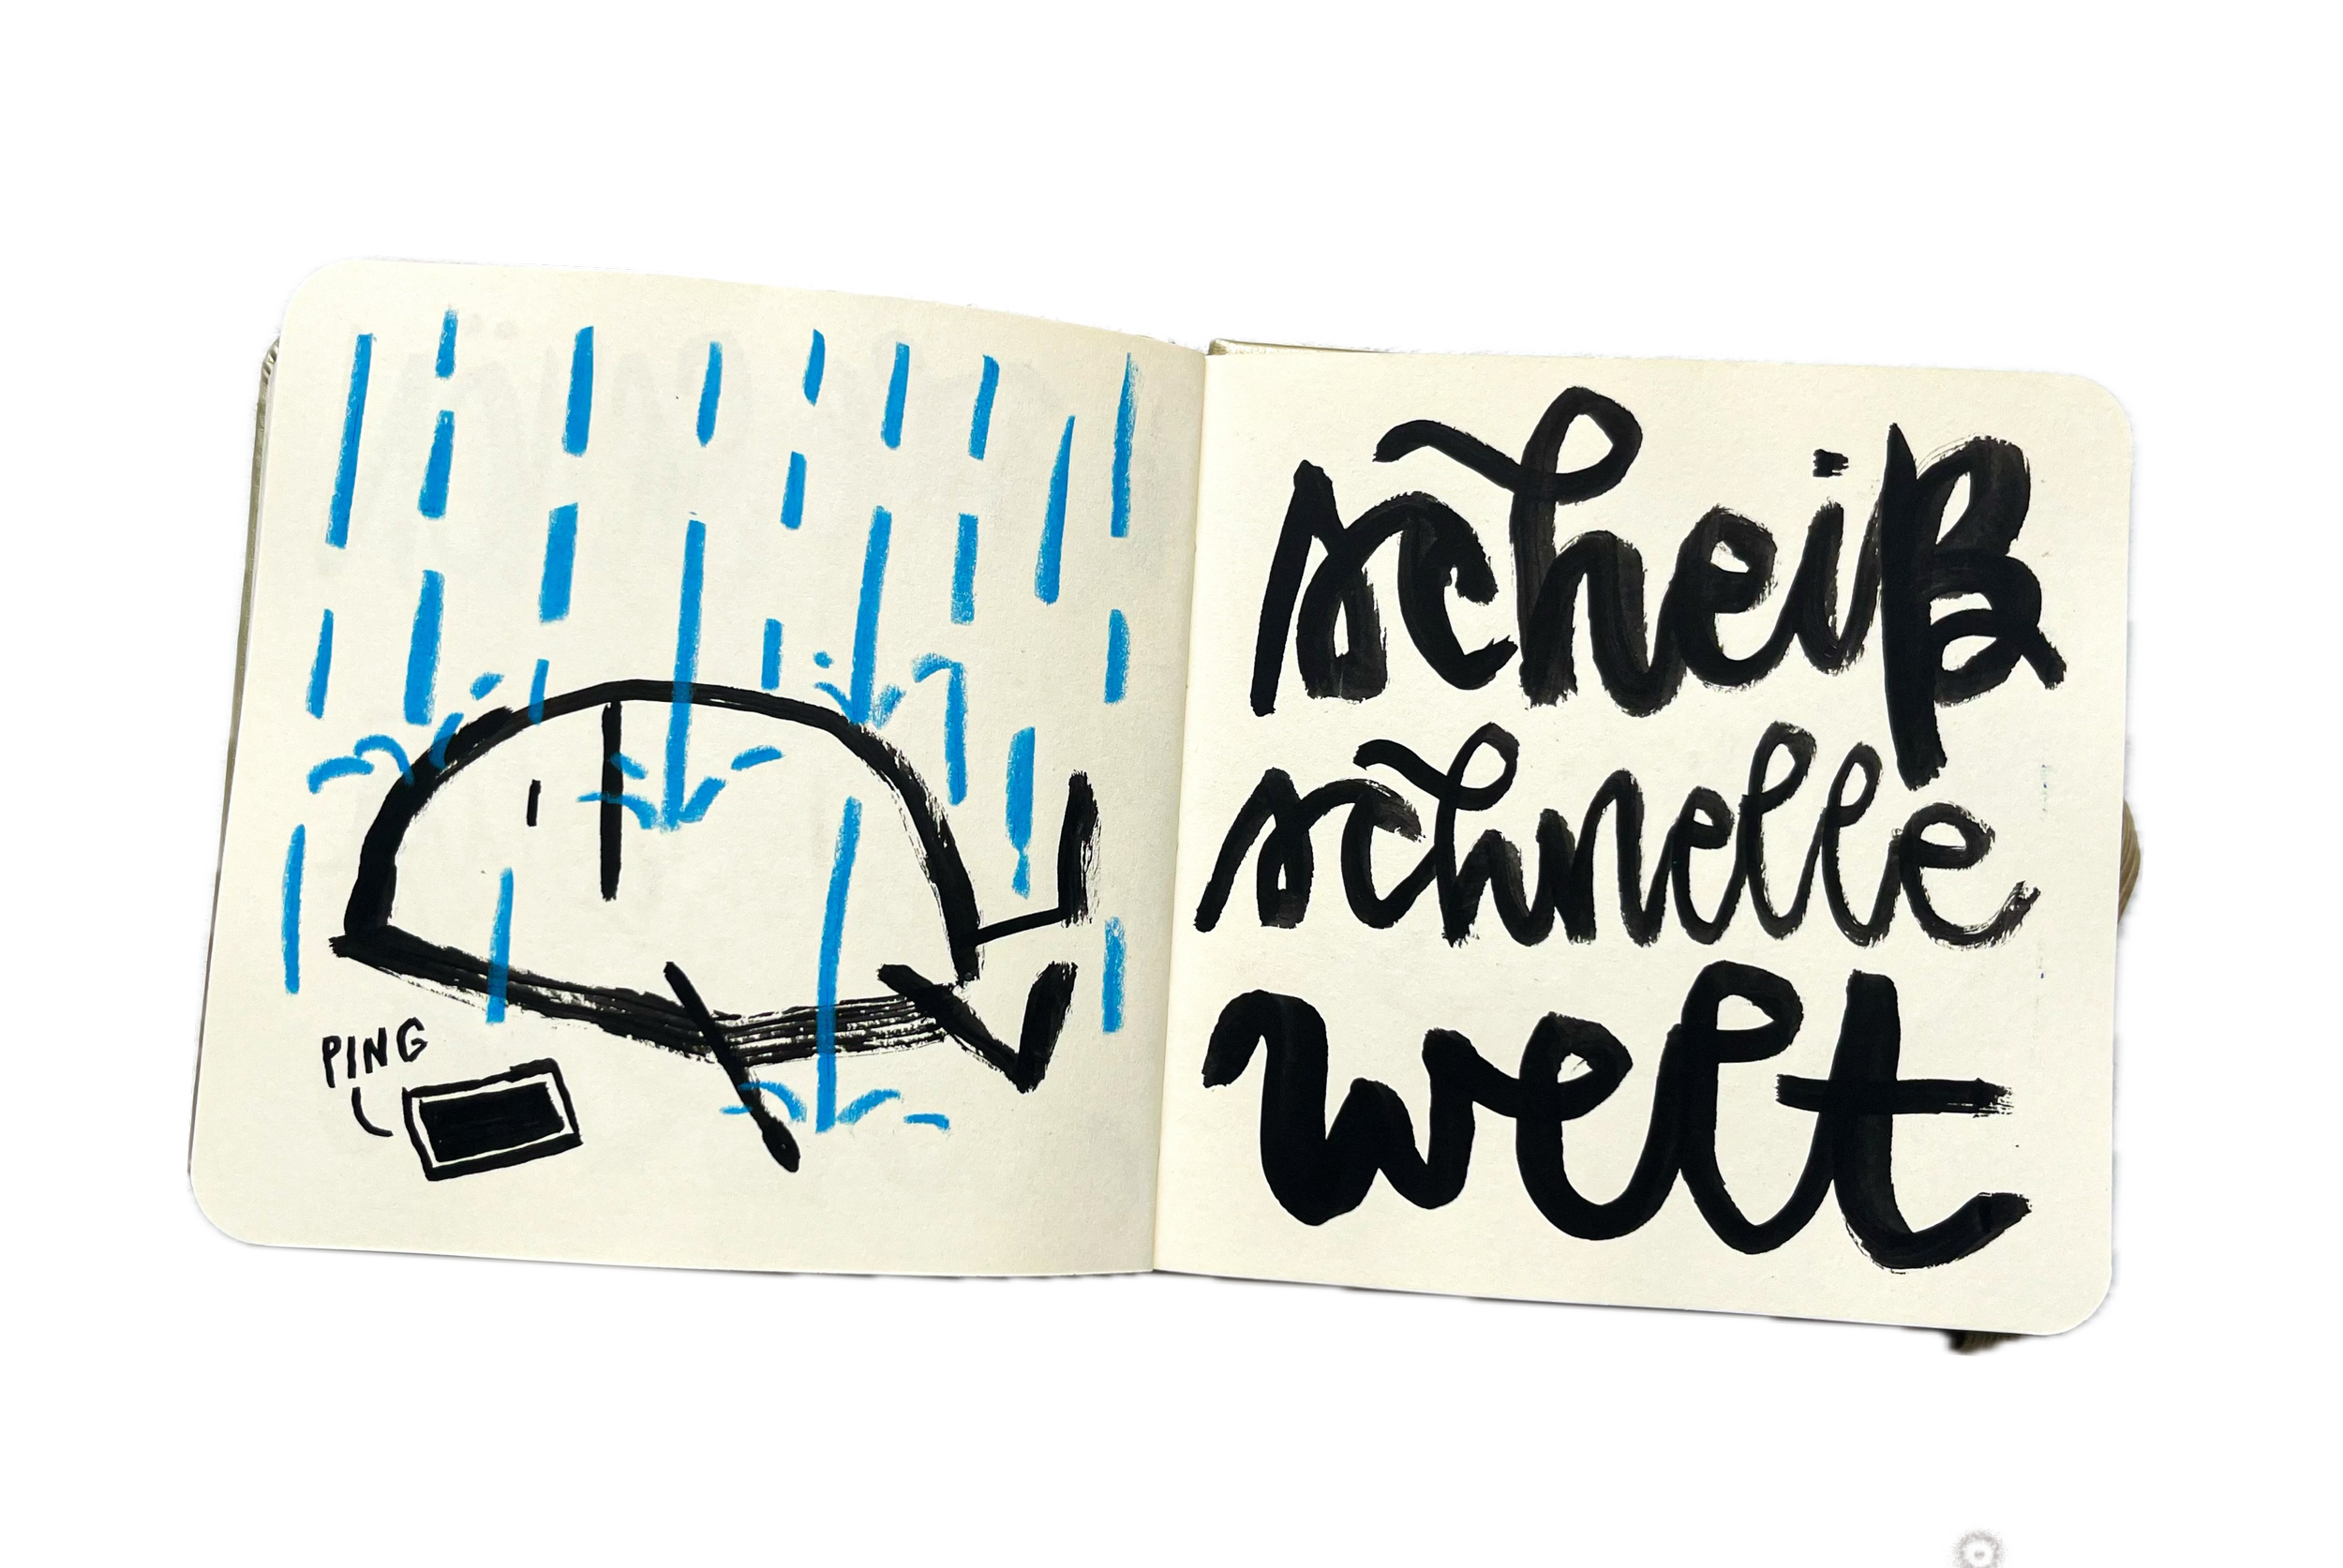 PING
scheiß
schnelle
welt